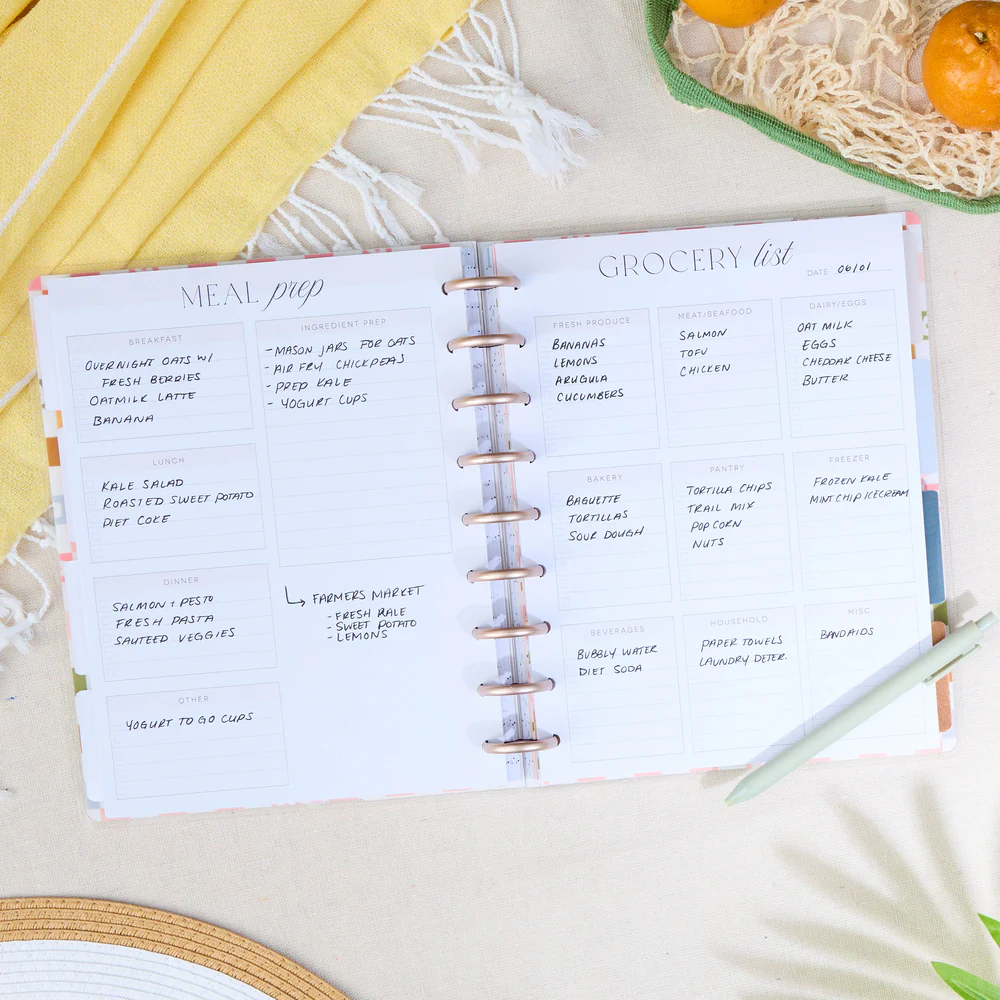 MEAL prep
BREAKFAST
OVERNIGHT OATS W/
FRESH BERRIES
OATMILK LATTE
BANANA
LUNCH
KALE SALAD
ROASTED SWEET POTATO
DIET COKE
DINNER
SALMON + PESTO
FRESH PASTA
SAUTEED VEGGIES
OTHER
YOGURT TO GO CUPS
INGREDIENT PREP
- MASON JARS FOR OATS
- AIR FRY CHICKPEAS
- PREP KALE
- YOGURT CUPS
FARMERS MARKET
- FRESH KALE
- SWEET POTATO
- LEMONS
GROCERY list
DATE: 06/01
FRESH PRODUCE
BANANAS
LEMONS
ARUGULA
CUCUMBERS
MEAT/SEAFOOD
SALMON
TOFU
CHICKEN
DAIRY/EGGS
OAT MILK
EGGS
CHEDDAR CHEESE
BUTTER
BAKERY
BAGUETTE
TORTILLAS
SOUR DOUGH
PANTRY
TORTILLA CHIPS
TRAIL MIX
POPCORN
NUTS
FREEZER
FROZEN KALE
MINT CHIP ICECREAM
BEVERAGES
BUBBLY WATER
DIET SODA
HOUSEHOLD
PAPER TOWELS
LAUNDRY DETER.
MISC
BANDAIDS